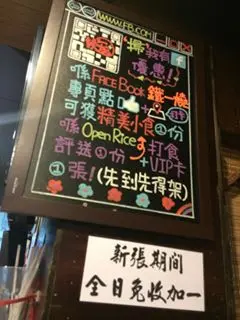 WWW.FB.COM/
"撐"我有
優惠!!
喺 FACE Book 鐵一燒
專頁點 👍 +
可獲精美小食①份
喺 Open Rice 打食
評送①份 +VIP卡
①張! (先到先得架)
新張期間
全日免收加一